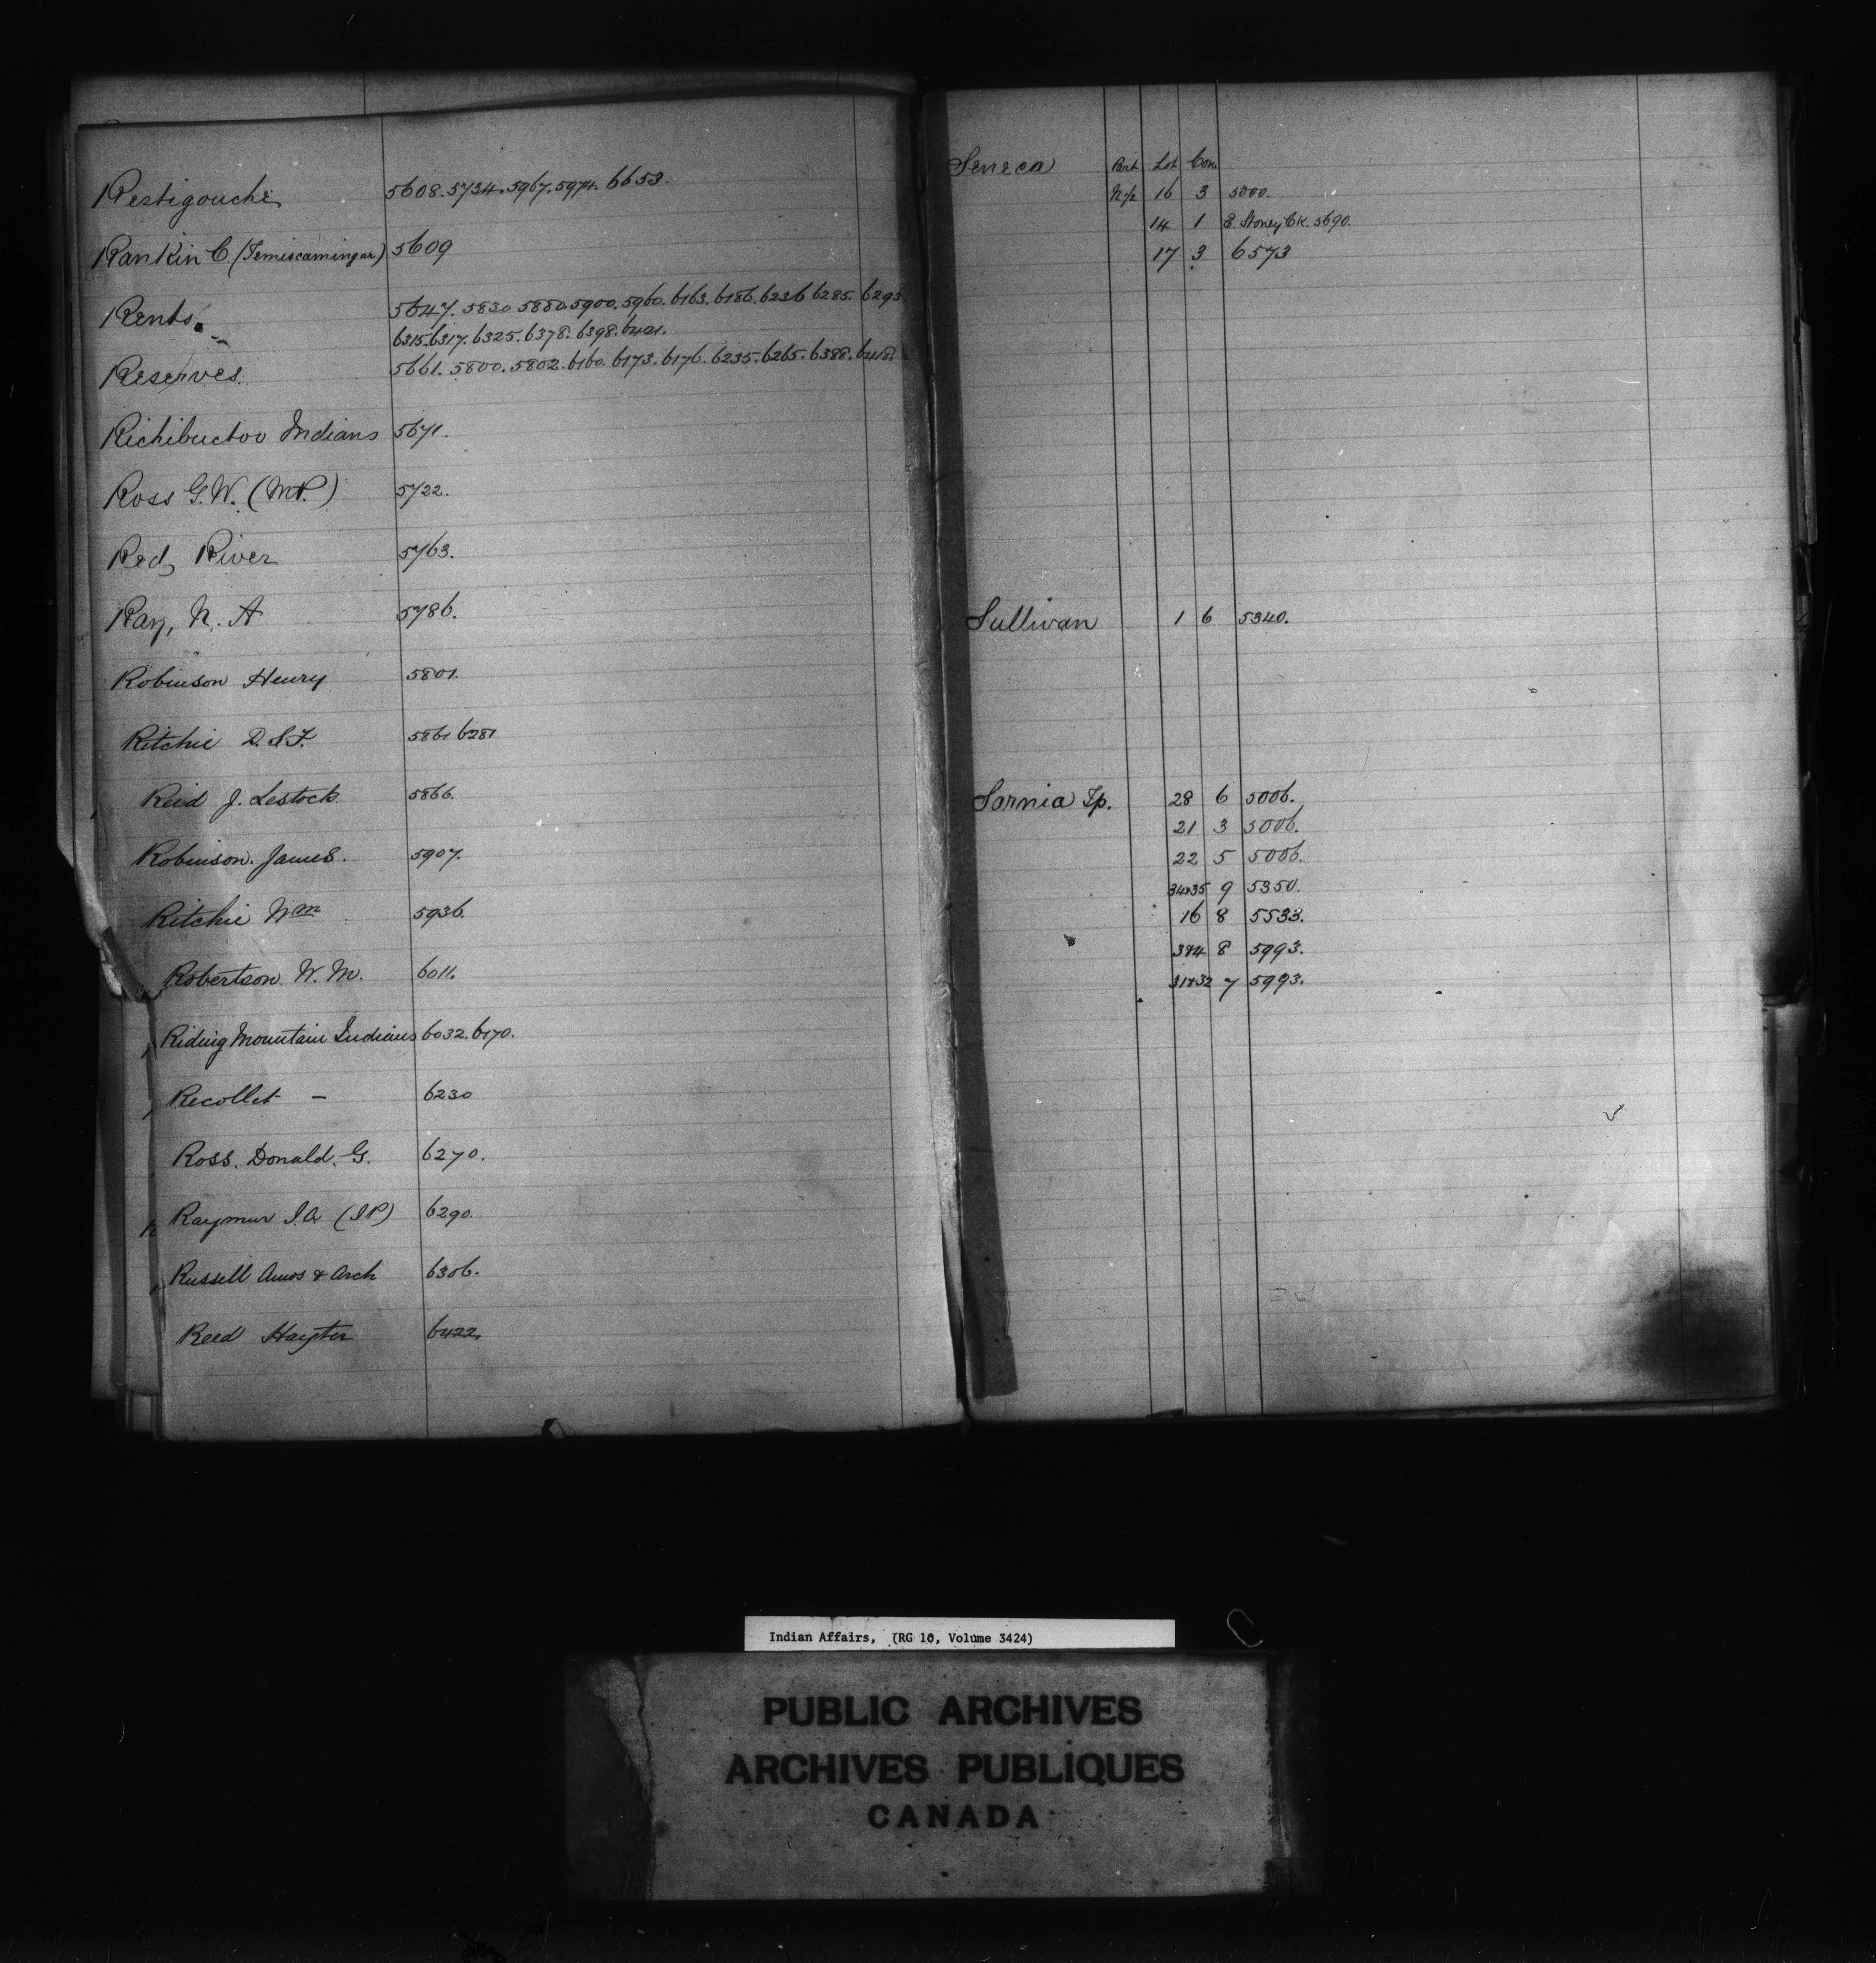 Restigouche 5608. 5734. 5967. 5974. 6653.
Rankin C. (Temiscamingue) 5609
Rents. 5647. 5830. 5880. 5900. 5960. 6163. 6186. 6236. 6285. 6293.
6315. 6317. 6325. 6378. 6398. 6401.
Reserves. 5661. 5800. 5802. 6160. 6173. 6176. 6235. 6265. 6388. 6418.
Richibuctoo Indians 5671.
Ross G.W. (M.P.) 5722.
Red River 5763.
Ray, N. A 5786.
Robinson Henry 5801.
Ritchie D. S. F. 5861 6281
Reid J. Lestock 5866.
Robinson. James. 5907.
Ritchie Wm 5936.
Robertson W. M. 6011.
Riding Mountain Indians 6032. 6170.
Recollet — 6230
Ross. Donald. G. 6270.
Raymur J.A. (I.P.) 6290.
Russell Amos & Arch 6306.
Reed Hayter 6422.
Seneca Part Lot Con
N½ 16 3 5000.
14 1 E. Stoney Ck. 5690.
17 3 6573
Sullivan 1 6 5340.
Sarnia Tp. 28 6 5006.
21 3 5006.
22 5 5006.
34&35 9 5350.
16 8 5533.
3&4 8 5993.
31&32 7 5993.
Indian Affairs, (RG 10, Volume 3424)
PUBLIC ARCHIVES
ARCHIVES PUBLIQUES
CANADA